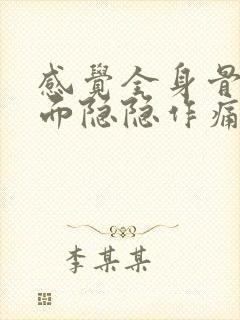 感覺全身骨
而隐隐作痛
李某某